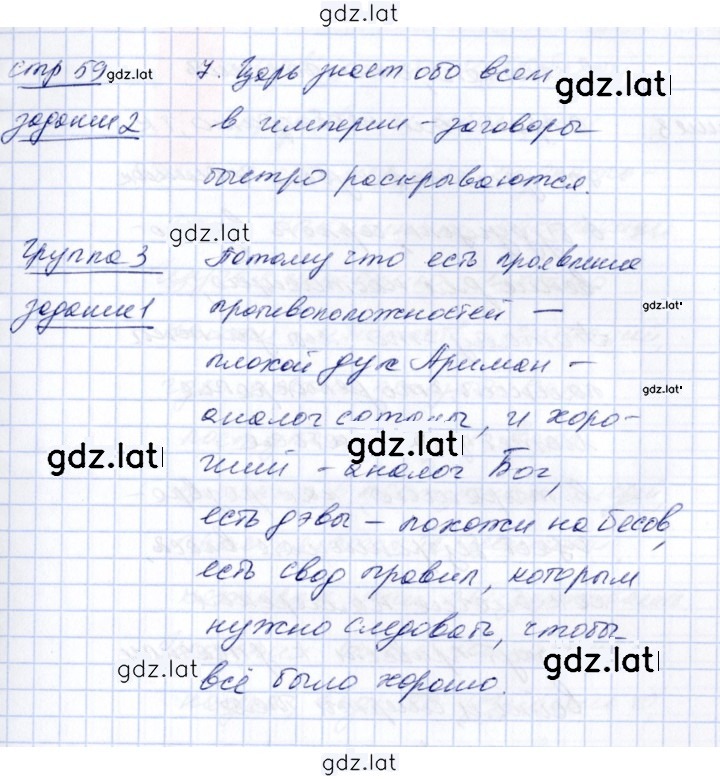 gdz.lat
стр 59 gdz.lat 7. Царь знает обо всем gdz.lat
задание 2 в империи - заговоры
быстро раскрываются.
gdz.lat
группа 3 Потому что есть проявление
задание 1 противоположностей — gdz.lat
плохой дух Ариман -
gdz.lat
аналог сатаны, и хоро-
gdz.lat gdz.lat
ший - аналог Бог,
есть дэвы - похожи на бесов,
есть свод правил, которым
нужно следовать, чтобы
gdz.lat gdz.lat
всё было хорошо.
gdz.lat